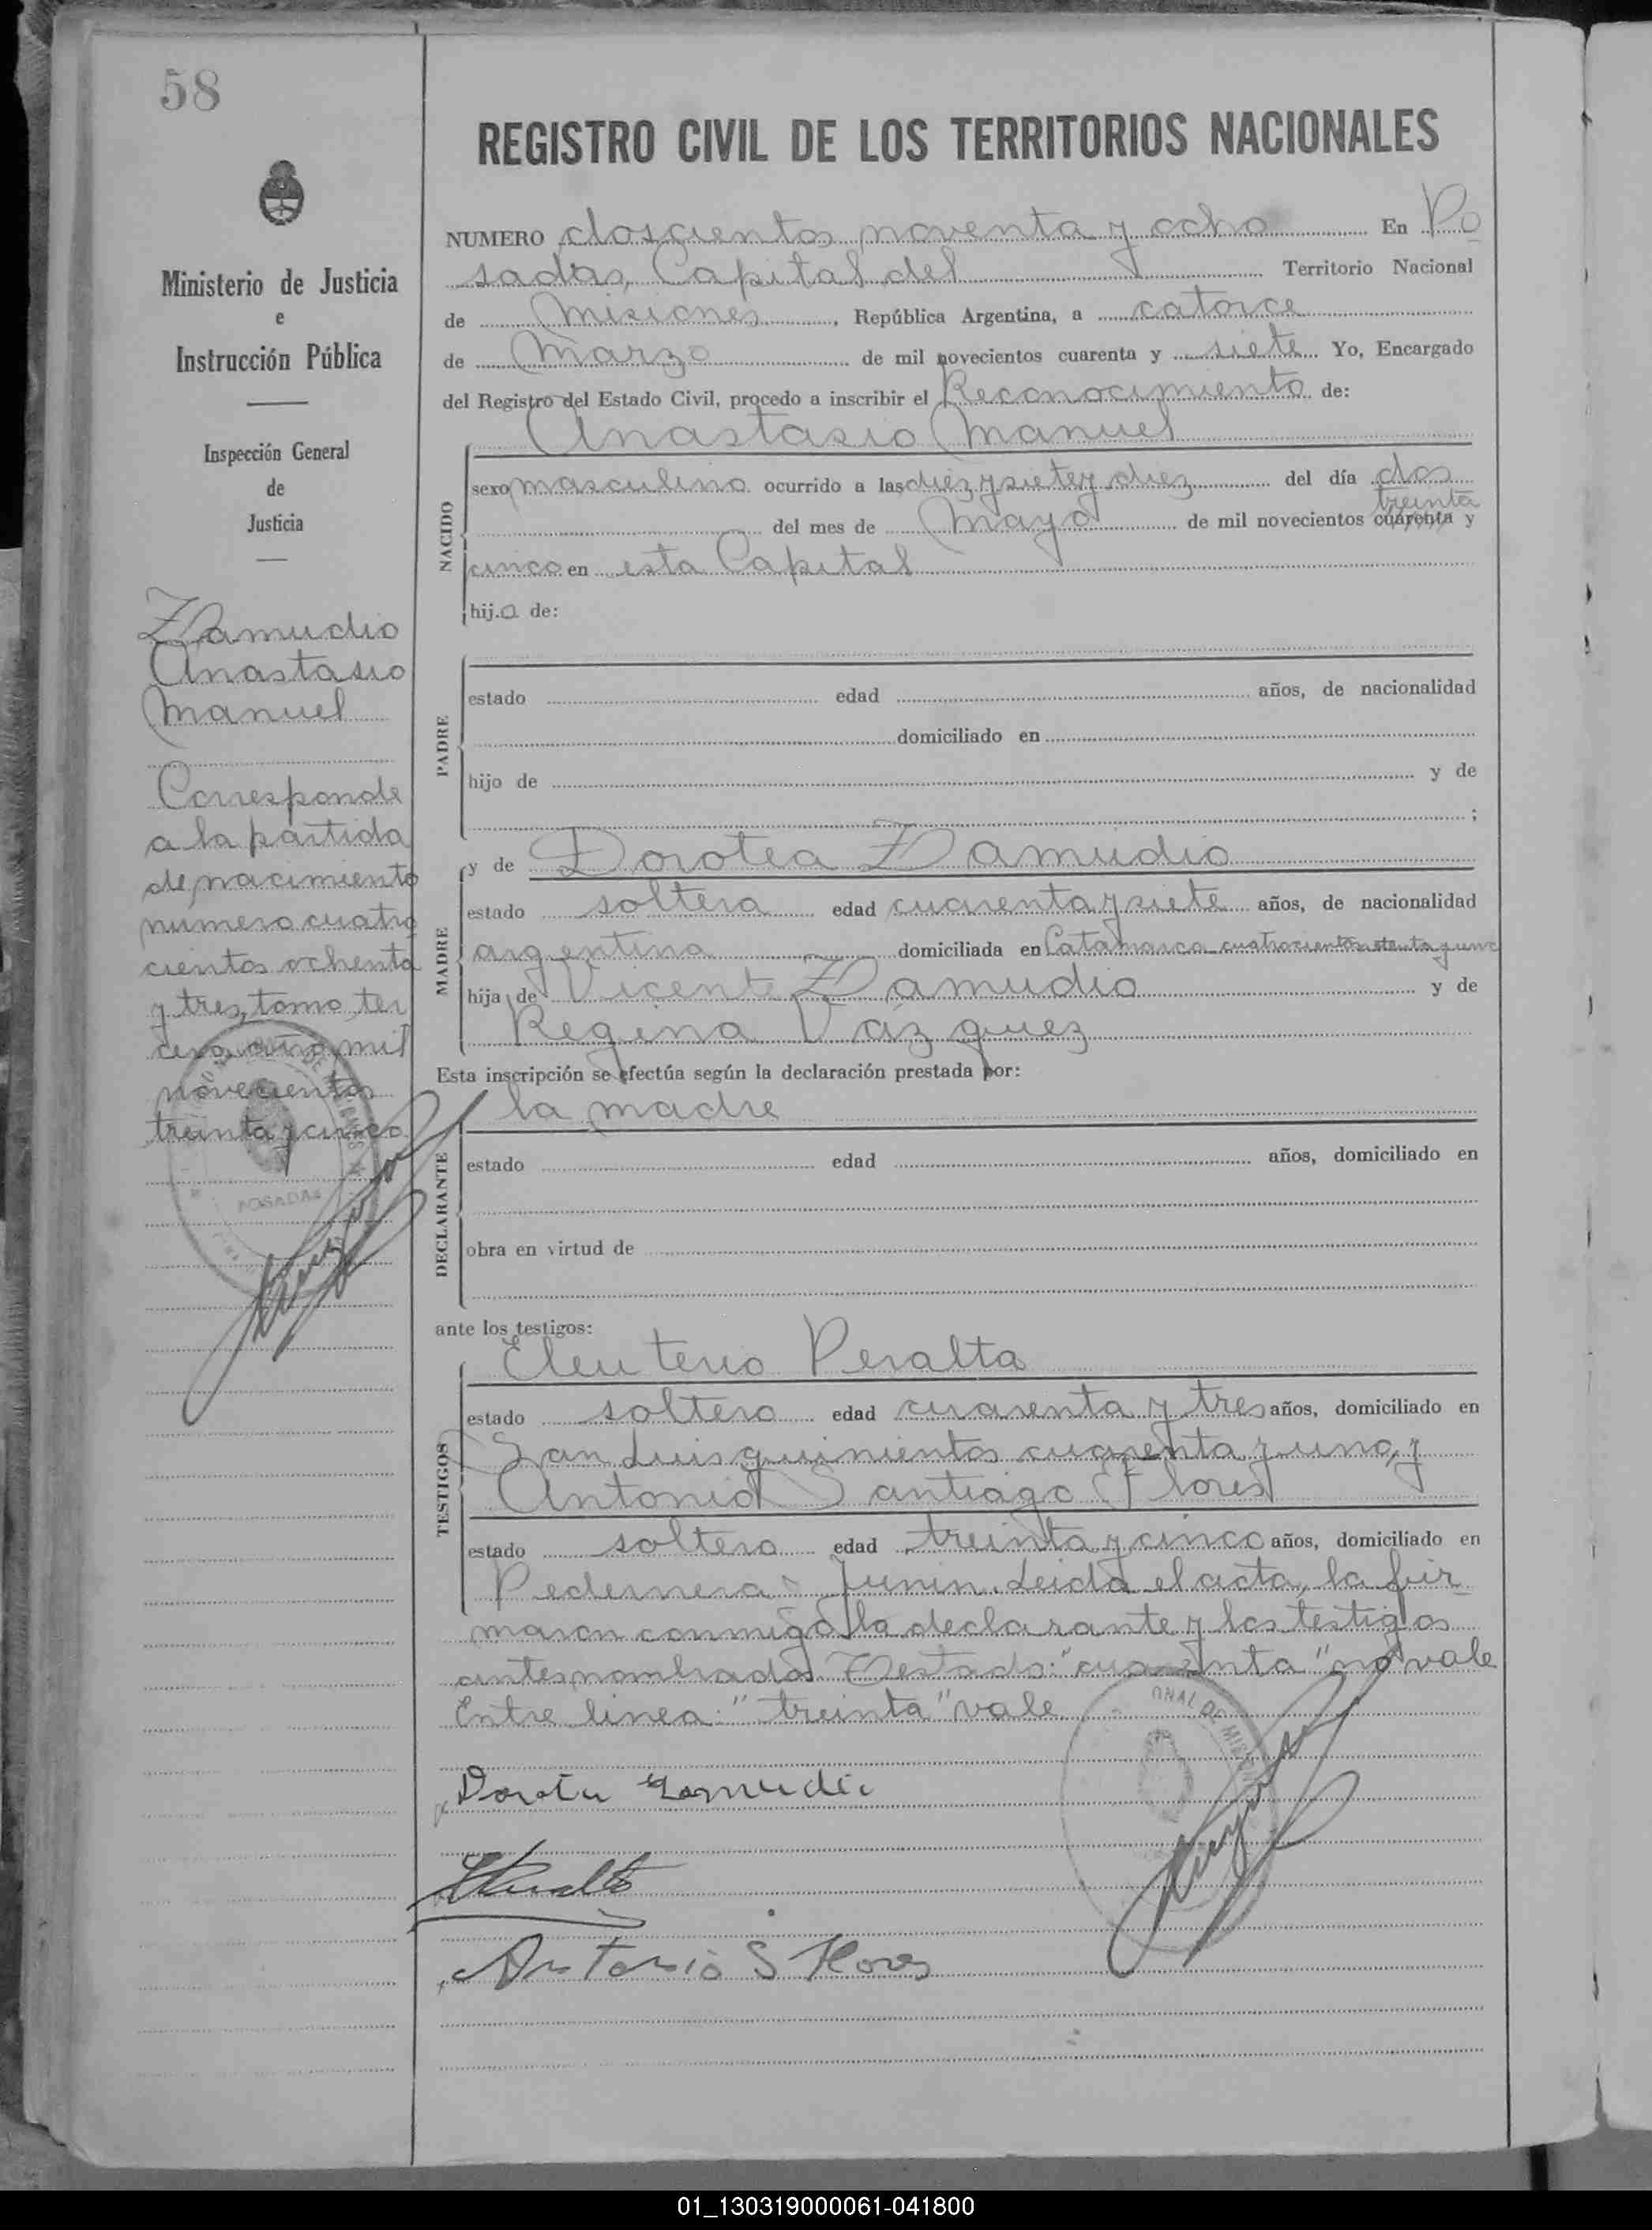 58
Ministerio de Justicia
e
Instrucción Pública
Inspección General
de
Justicia
Zamudio
Anastasio
Manuel
Corresponde
a la partida
de nacimiento
numero cuatro
cientos ochenta
y tres, tomo ter
cero año mil
novecientos
treinta y cinco
POSADAS
REGISTRO CIVIL DE LOS TERRITORIOS NACIONALES
NUMERO doscientos noventa y ocho En Po
sadas, Capital del Territorio Nacional
de Misiones, República Argentina, a catorce
de Marzo de mil novecientos cuarenta y siete Yo, Encargado
del Registro del Estado Civil, procedo a inscribir el Reconocimiento de:
Anastasio Manuel
NACIDO
sexo masculino ocurrido a las diez y siete y diez del día dos
treinta
del mes de Mayo de mil novecientos cuarenta y
cinco en esta Capital
hijo de:
PADRE
estado edad años, de nacionalidad
domiciliado en
hijo de y de
;
MADRE
y de Dorotea Zamudio
estado soltera edad cuarenta y siete años, de nacionalidad
argentina domiciliada en Catamarca cuatrocientos y uno
hija de Vicente Zamudio y de
Regina Vázquez
Esta inscripción se efectúa según la declaración prestada por:
DECLARANTE
la madre
estado edad años, domiciliado en
obra en virtud de
ante los testigos:
TESTIGOS
Eleuterio Peralta
estado soltero edad cuarenta y tres años, domiciliado en
San Luis quinientos cuarenta y uno, y
Antonio Santiago Flores
estado soltero edad treinta y cinco años, domiciliado en
Pedernera Junin. Leida el acta, la fir
maron conmigo la declarante y los testigos
antes nombrados Testado: "cuarenta" no vale
Entre linea: "treinta" vale
ONAL DE MISIONES
Dorotea Zamudio
EPeralta
Antonio S Flores
01_130319000061-041800